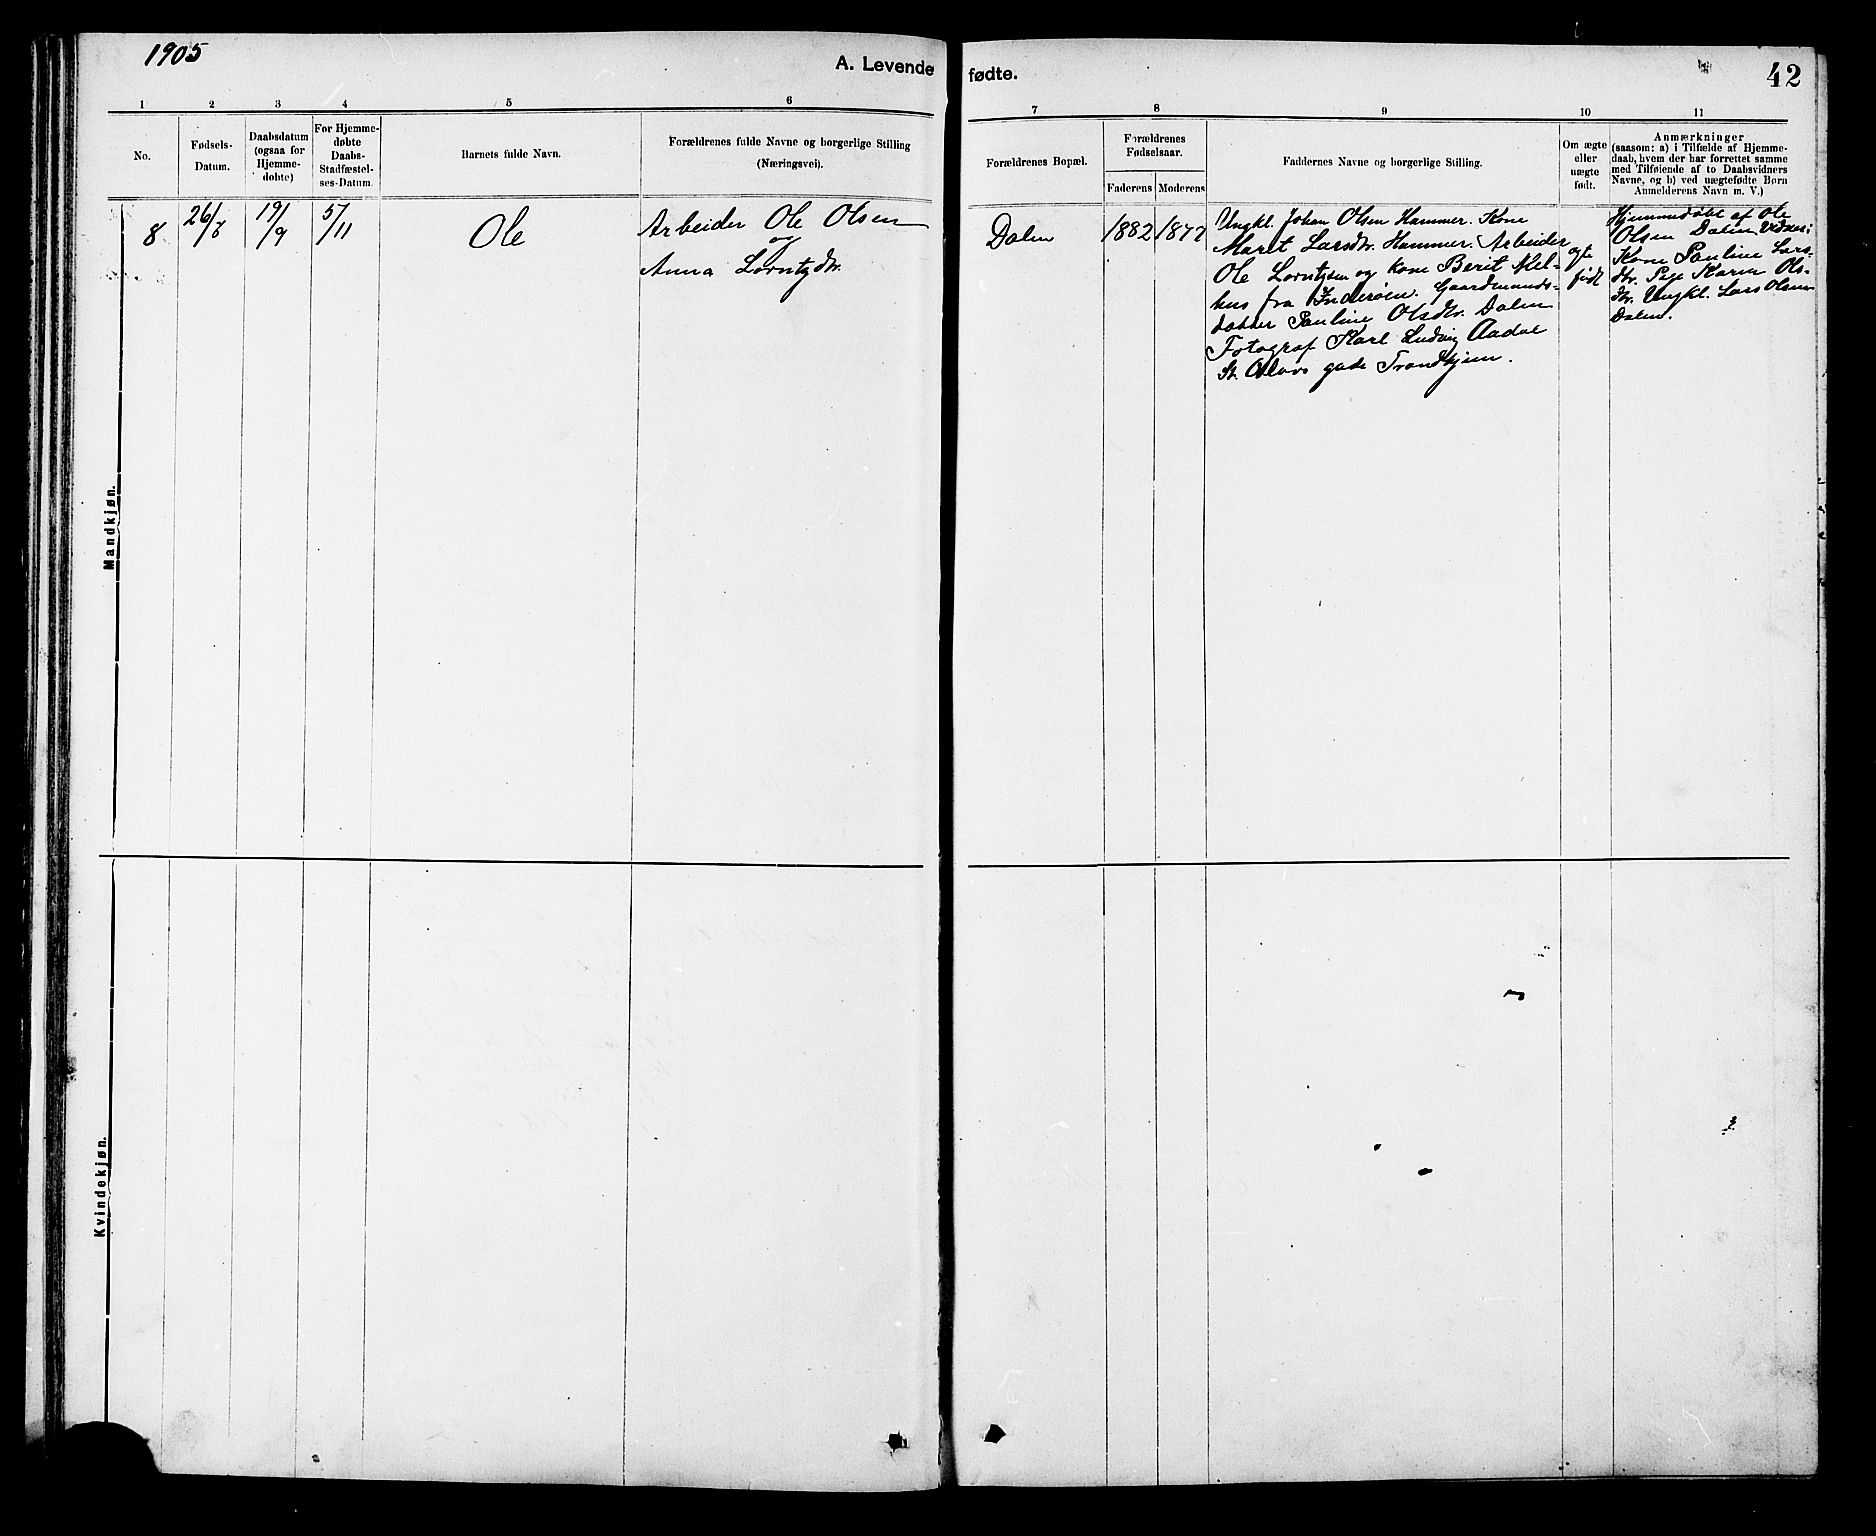 1905
A. Levende
fødte.
42
1
2
3
4
5
6
7
8
9
10
11
No.
Fødsels-
Datum.
Daabsdatum
(ogsaa for
Hjemme-
døbte)
For Hjemme-
døbte
Daabs-
Stadfæstel-
ses-Datum.
Barnets fulde Navn.
Forældrenes fulde Navne og borgerlige Stilling
(Næringsvei).
Forældrenes Bopæl.
Forældrenes
Fødselsaar.
Faderens
Moderens
Faddernes Navne og borgerlige Stilling.
Om ægte
eller
uægte
født.
Anmærkninger
(saasom: a) i Tilfælde af Hjemme-
daab, hvem der har forrettet samme
med Tilføiende af to Daabsvidners
Navne, og b) ved uægtefødte Børn
Anmelderens Navn m. V.)
Mandkjøn.
8
26/8
19/9
5/11
Ole
Arbeider Ole Olsen
og
Anna Lorntzdtr.
Dalen
1882
1877
Ungkl. Johan Olsen Hammer. Kone
Maret Larsdtr. Hammer. Arbeider
Ole Lorntzen og kone Berit Mel-
hus fra Inderøen. Gaardmands-
datter Pauline Olsdtr. Dalen
Fotograf Karl Ludvig Aadal
St. Olavs gade Trondhjem.
ægte
født
Hjemmedøbt af Ole
Olsen Dalen Vidner:
Kone Pauline Lars-
dtr. Pige Karen Ols-
dtr. Ungkl. Lars Olsen
Dalen.
Kvindekjøn.